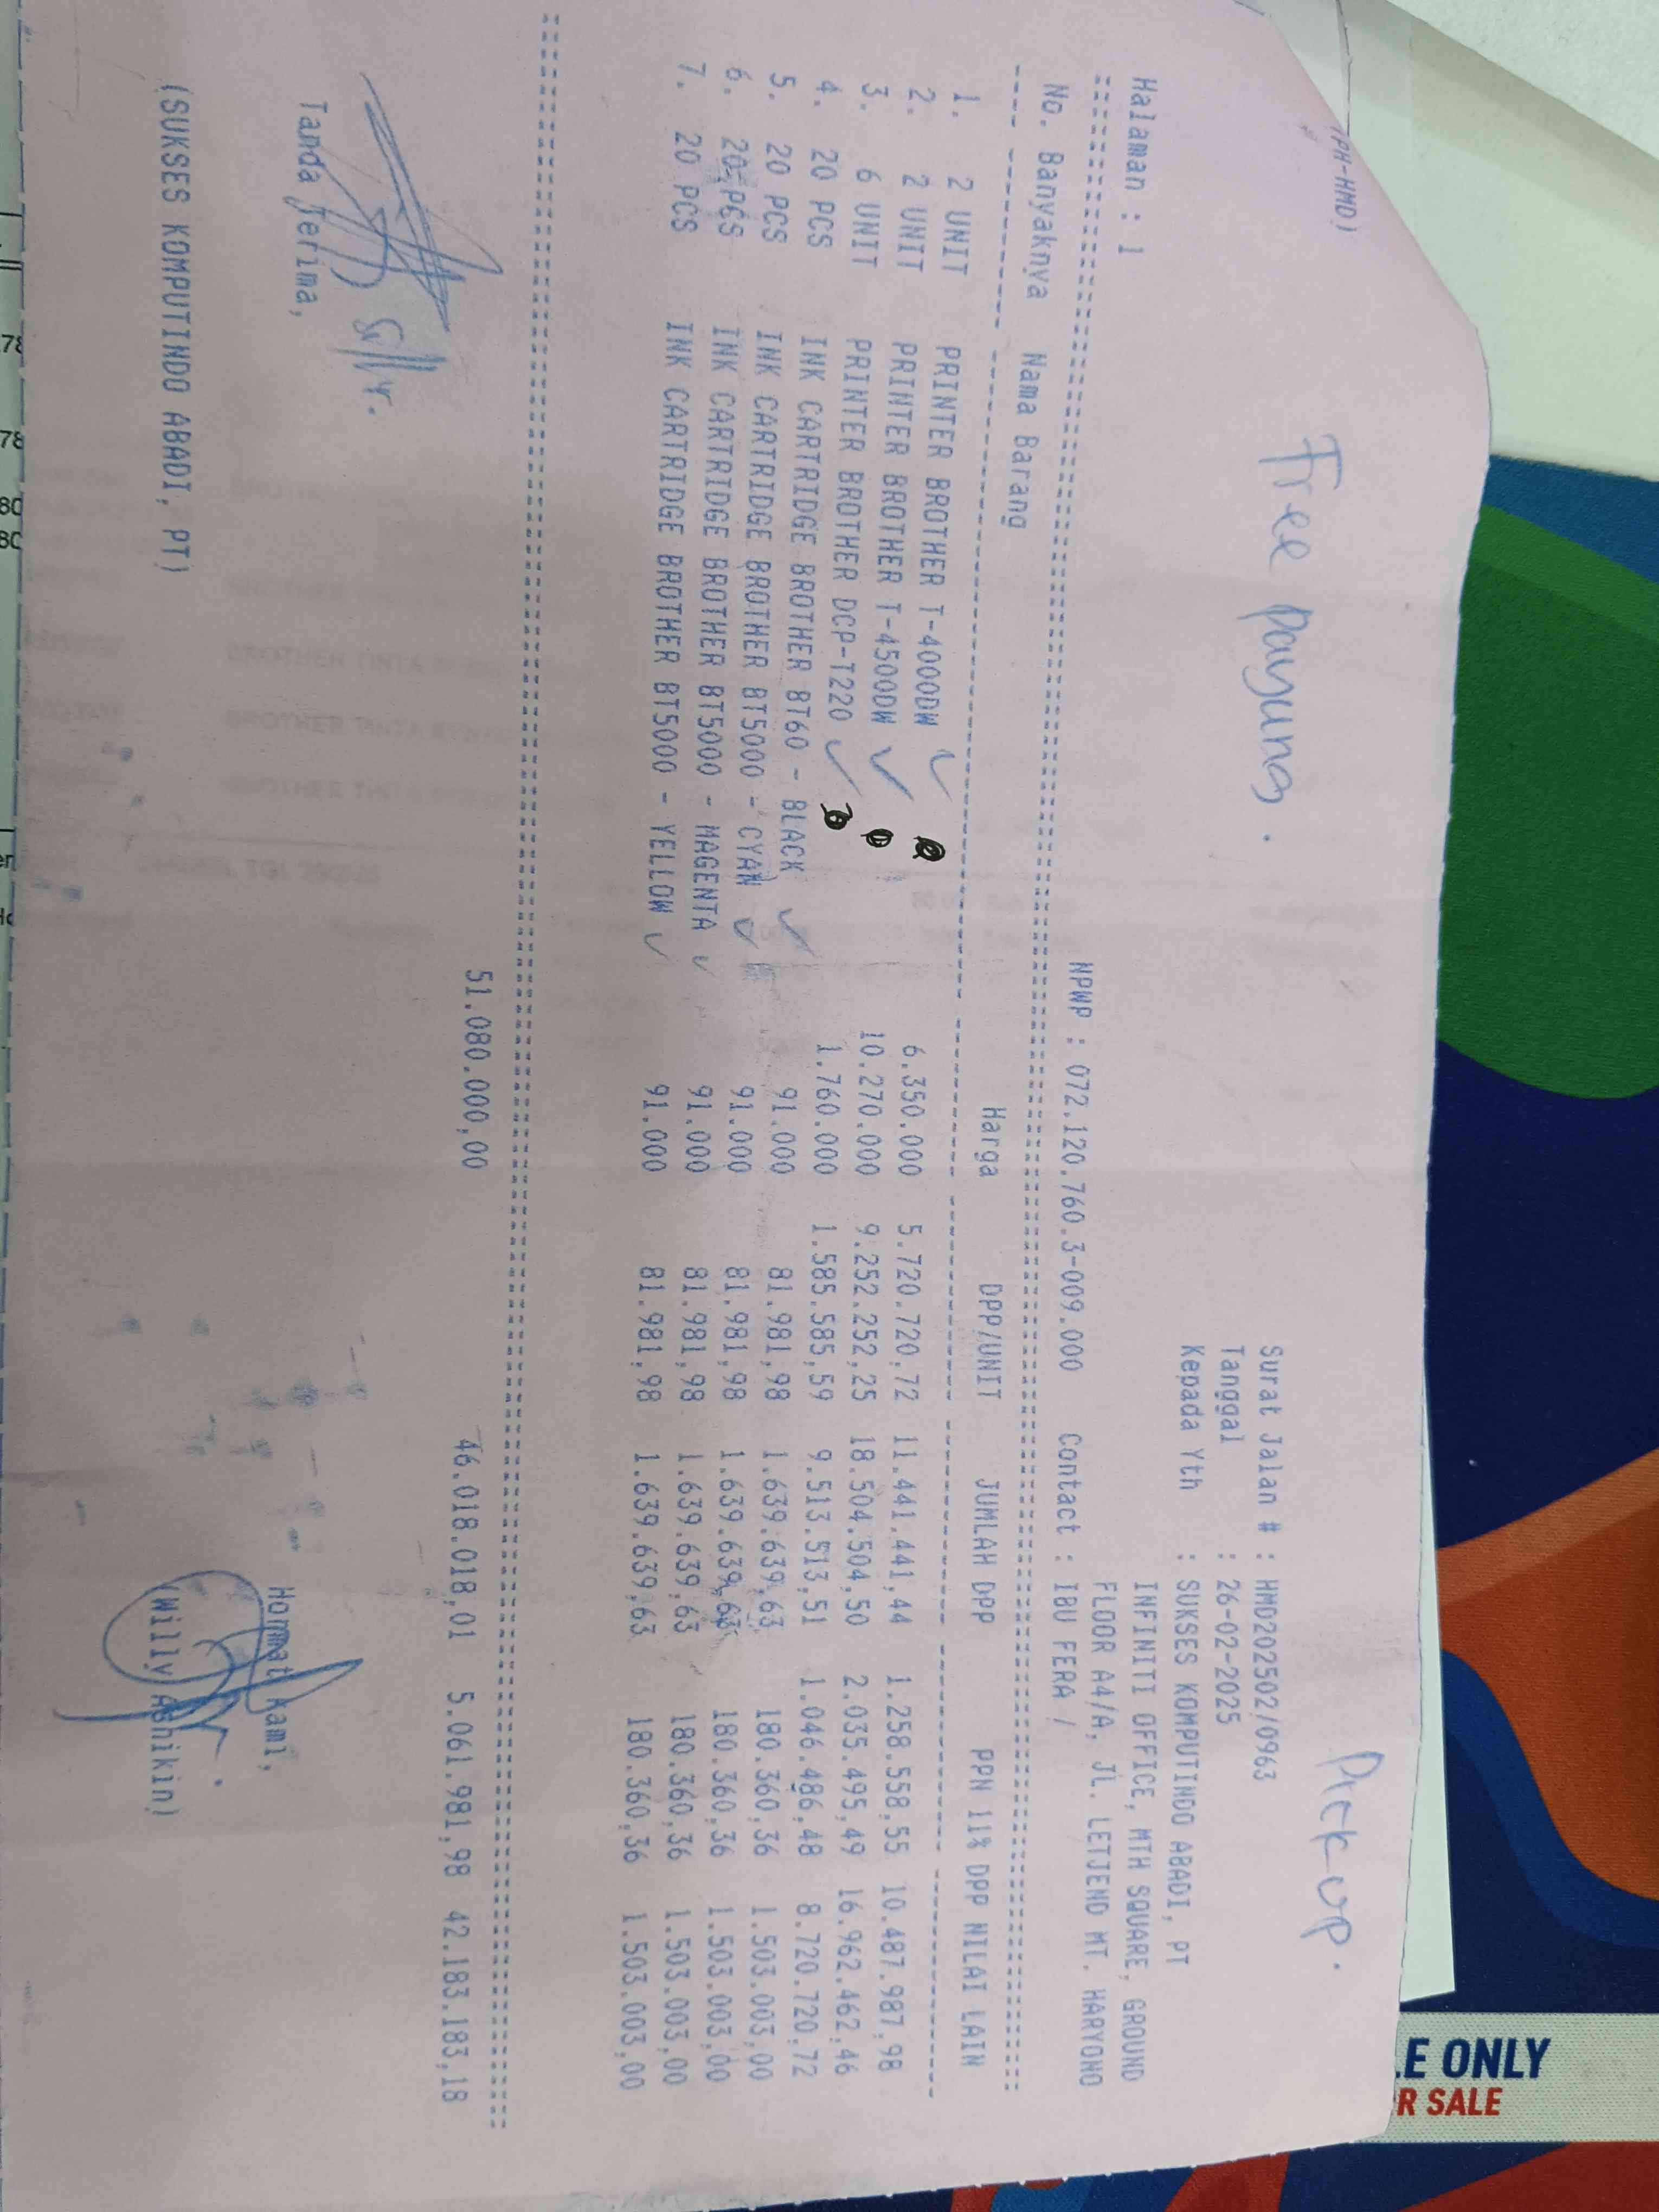 (PH-HMD)
Pick up.
Free payung.
Surat Jalan # : HMD202502/0963
Tanggal : 26-02-2025
Kepada Yth : SUKSES KOMPUTINDO ABADI, PT
INFINITI OFFICE, MTH SQUARE, GROUND
FLOOR A4/A, JL. LETJEND MT. HARYONO
Halaman : 1 NPWP : 072.120.760.3-009.000 Contact : IBU FERA /
No. Banyaknya Nama Barang Harga DPP/UNIT JUMLAH DPP PPN 11% DPP NILAI LAIN
1. 2 UNIT PRINTER BROTHER T-4000DW 6.350.000 5.720.720,72 11.441.441,44 1.258.558,55 10.487.987,98
2. 2 UNIT PRINTER BROTHER T-4500DW 10.270.000 9.252.252,25 18.504.504,50 2.035.495,49 16.962.462,46
3. 6 UNIT PRINTER BROTHER DCP-T220 1.760.000 1.585.585,59 9.513.513,51 1.046.486,48 8.720.720,72
4. 20 PCS INK CARTRIDGE BROTHER BT60 - BLACK 91.000 81.981,98 1.639.639,63 180.360,36 1.503.003,00
5. 20 PCS INK CARTRIDGE BROTHER BT5000 - CYAN 91.000 81.981,98 1.639.639,63 180.360,36 1.503.003,00
6. 20 PCS INK CARTRIDGE BROTHER BT5000 - MAGENTA 91.000 81.981,98 1.639.639,63 180.360,36 1.503.003,00
7. 20 PCS INK CARTRIDGE BROTHER BT5000 - YELLOW 91.000 81.981,98 1.639.639,63 180.360,36 1.503.003,00
51.080.000,00 46.018.018,01 5.061.981,98 42.183.183,18
Tanda Terima, Hormat Kami,
(SUKSES KOMPUTINDO ABADI, PT) (Willy Ashikin)
E ONLY
R SALE